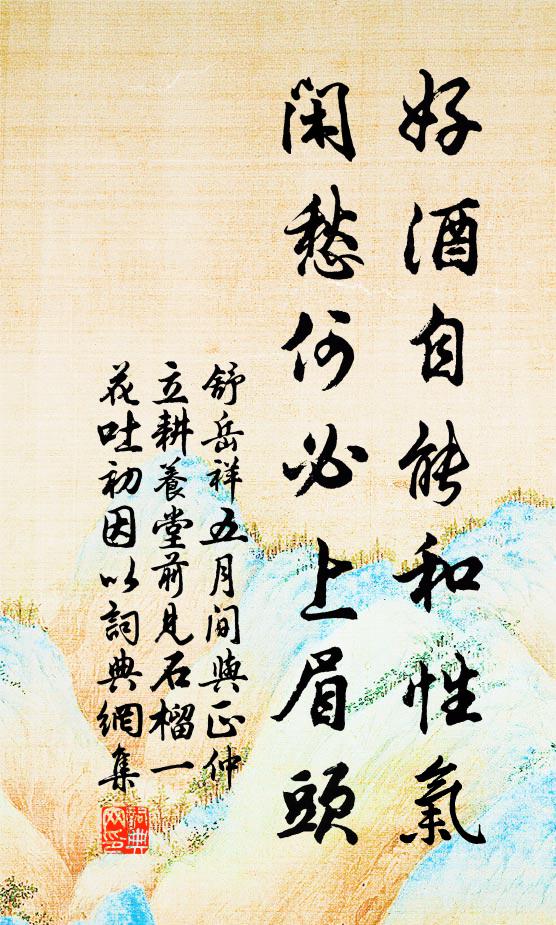 好酒自能和性氣
閑愁何必上眉頭
舒岳祥五月間與正仲
立耕養堂前見石榴一
花吐初因以詞典網集
詞典
网印